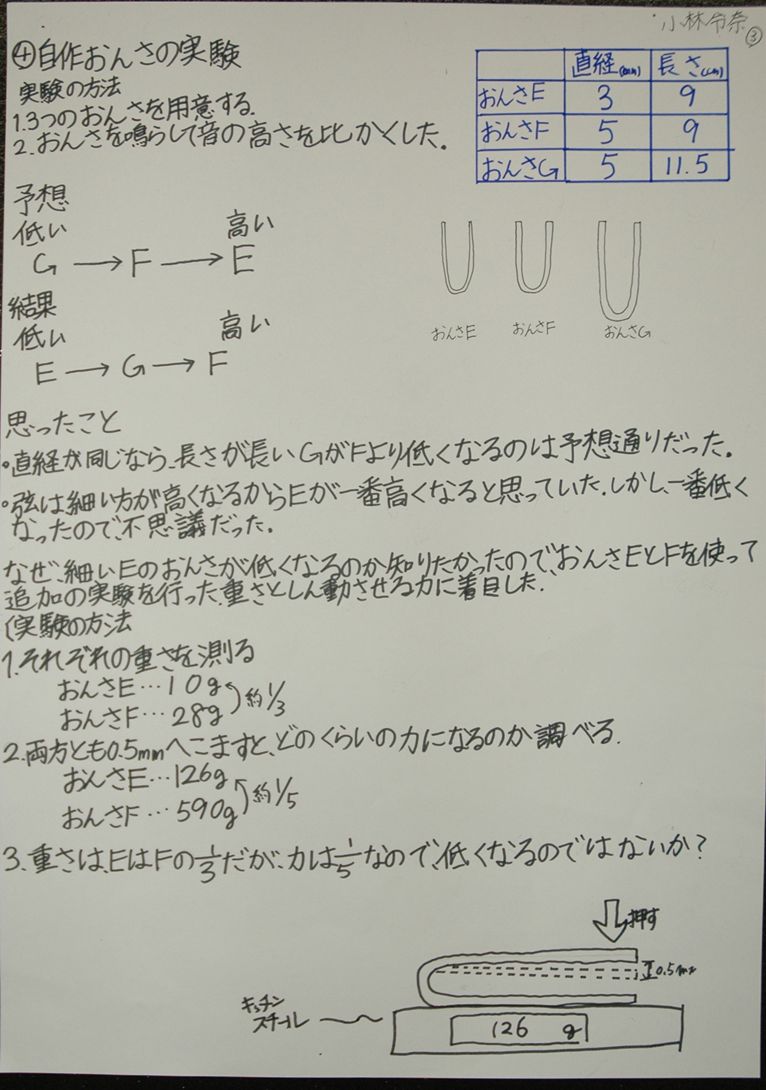 小林令奈
③
④自作おんさの実験
実験の方法
1.3つのおんさを用意する.
2.おんさを鳴らして音の高さを比かくした.
直経(mm) 長さ(cm)
おんさE 3 9
おんさF 5 9
おんさG 5 11.5
予想
低い 高い
G → F → E
結果
低い 高い
E → G → F
おんさE おんさF おんさG
思ったこと
・直経が同じなら、長さが長いGがFより低くなるのは予想通りだった.
・弦は細い方が高くなるからEが一番高くなると思っていた.しかし、一番低く
なったので、不思議だった.
なぜ、細いEのおんさが低くなるのか知りたかったので、おんさEとFを使って
追加の実験を行った.重さとしん動させる力に着目した.
(実験の方法
1.それぞれの重さを測る
おんさE…10g
おんさF…28g
約1/3
2.両方とも0.5mmへこますと、どのくらいの力になるのか調べる.
おんさE…126g
おんさF…590g
約1/5
3.重さは、EはFの1/3だが、力は1/5なので、低くなるのではないか?
押す
0.5mm
キッチン
スケール
126 g